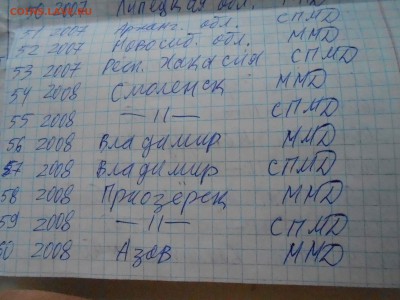 50 2007 Липецкая обл. ММД
51 2007 Арханг. обл. СПМД
52 2007 Новосиб. обл. ММД
53 2007 Респ. Хакасия СПМД
54 2008 Смоленск ММД
55 2008 —11— СПМД
56 2008 Владимир ММД
57 2008 Владимир СПМД
58 2008 Приозёрск ММД
59 2008 —11— СПМД
60 2008 Азов ММД